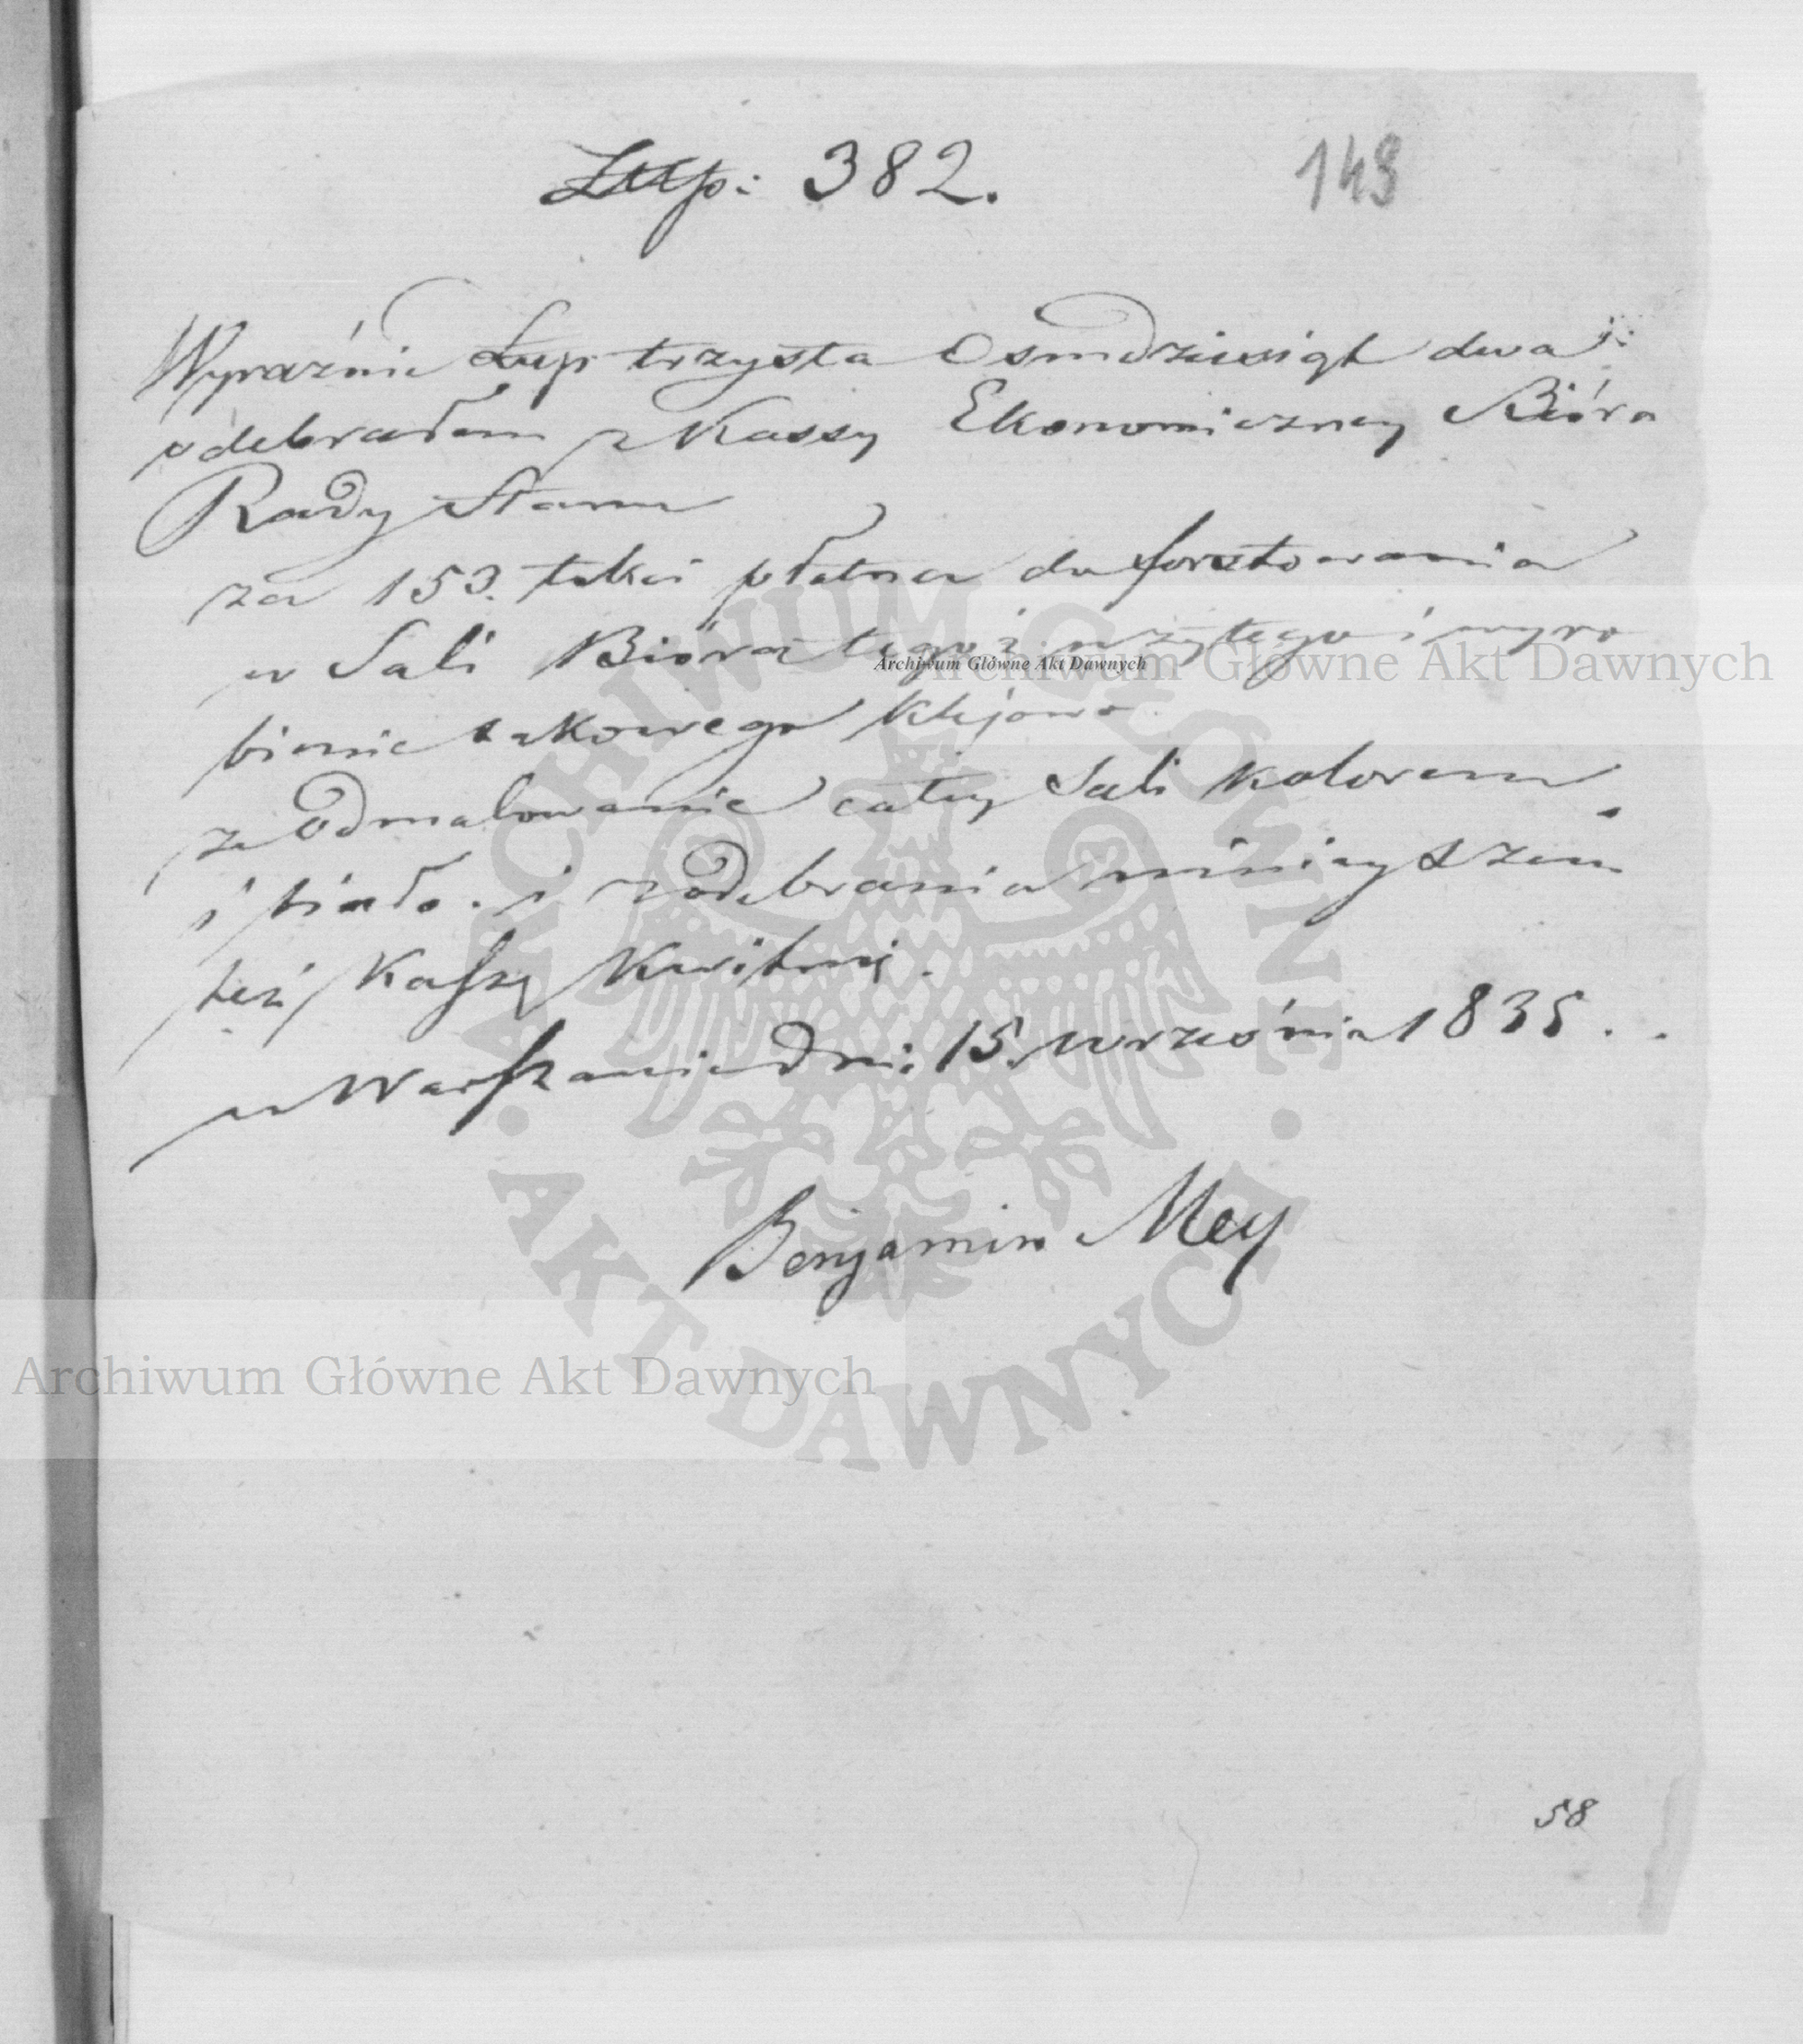 Złłp: 382.
149
Wyraźnie Złłp trzysta Osmdziesiąt dwa
odebrałem z Kassy Ekonomiczney Bióra
Rady Stanu
za 153. łokci płótna do forsztowania
w Sali Bióra tegoż użytego i wyro
bienie takowego klejowo
za Odmalowanie całey Sali Kolorem
i biało. i z odebrania ninieyszem
też Kassę Kwituię.
w Warszawie dnia 15 września 1835.
Benjamin Mey
58
Archiwum Główne Akt Dawnych
Archiwum Główne Akt Dawnych
Archiwum Główne Akt Dawnych
ARCHIWUM GŁÓWNE · AKT DAWNYCH ·